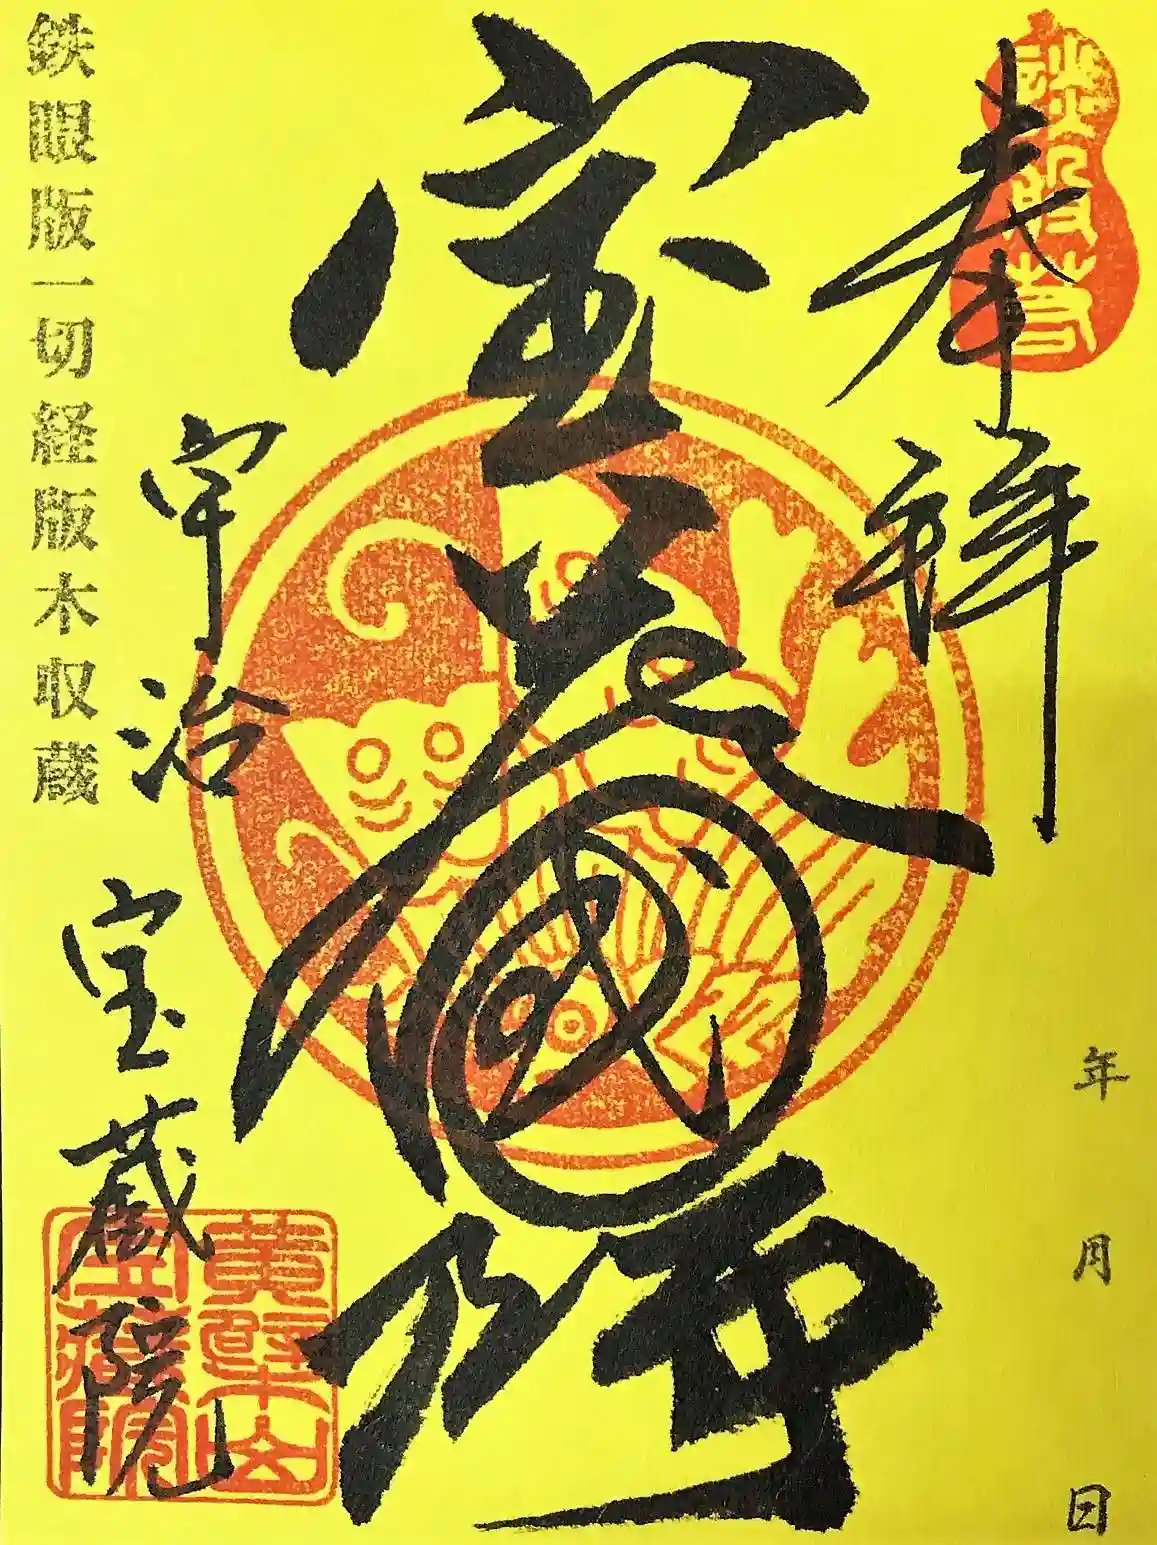 奉拝
年 月 日
宝蔵國師
宇治 宝蔵院
黄檗山
宝藏院
鉄眼版一切経版木収蔵